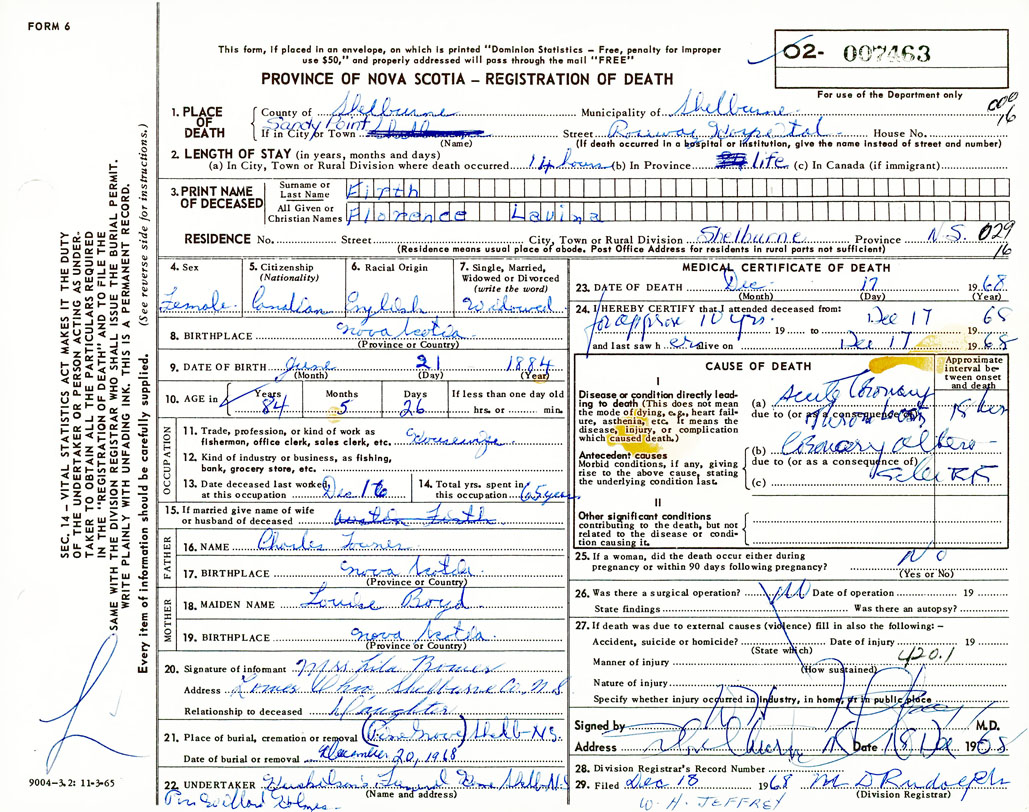 FORM 6
This form, if placed in an envelope, on which is printed "Dominion Statistics – Free, penalty for improper
use $50," and properly addressed will pass through the mail "FREE"
PROVINCE OF NOVA SCOTIA – REGISTRATION OF DEATH
O2- 007463
For use of the Department only
000
16
1. PLACE OF DEATH
County of Shelburne Municipality of Shelburne
Sandy Point
If in City or Town Street Roseway Hospital House No.
(Name) (If death occurred in a hospital or institution, give the name instead of street and number)
2. LENGTH OF STAY (in years, months and days)
(a) In City, Town or Rural Division where death occurred 14 hours (b) In Province life (c) In Canada (if immigrant)
3. PRINT NAME OF DECEASED
Surname or Last Name Firth
All Given or Christian Names Florence Lavina
RESIDENCE No. Street City, Town or Rural Division Shelburne Province N.S. 029
16
(Residence means usual place of abode. Post Office Address for residents in rural parts not sufficient)
4. Sex Female
5. Citizenship (Nationality) Canadian
6. Racial Origin English
7. Single, Married, Widowed or Divorced (write the word) Widowed
8. BIRTHPLACE Nova Scotia
(Province or Country)
9. DATE OF BIRTH June 21 1884
(Month) (Day) (Year)
10. AGE in Years Months Days If less than one day old
84 5 26 hrs. or min.
OCCUPATION
11. Trade, profession, or kind of work as
fisherman, office clerk, sales clerk, etc. Housewife
12. Kind of industry or business, as fishing,
bank, grocery store, etc.
13. Date deceased last worked at this occupation Dec. 16
14. Total yrs. spent in this occupation 65 years
15. If married give name of wife
or husband of deceased Austin Firth
FATHER
16. NAME Charles
17. BIRTHPLACE Nova Scotia
(Province or Country)
MOTHER
18. MAIDEN NAME Louise Boyd
19. BIRTHPLACE Nova Scotia
(Province or Country)
20. Signature of informant Mrs
Address Shelburne Co. N.S
Relationship to deceased Daughter
21. Place of burial, cremation or removal (Pine Grove) Shelb- N.S.
Date of burial or removal December 20, 1968
22. UNDERTAKER Funeral Home Shelb. N.S.
(Name and address)
Per Willard Holmes
MEDICAL CERTIFICATE OF DEATH
23. DATE OF DEATH Dec. 17 1968
(Month) (Day) (Year)
24. I HEREBY CERTIFY that I attended deceased from:
for approx 10 yrs. 19 to Dec 17 1968
and last saw her alive on Dec 17 1968
CAUSE OF DEATH
Approximate interval between onset and death
I
Disease or condition directly leading to death (This does not mean
the mode of dying, e.g., heart failure, asthenia, etc. It means the
disease, injury, or complication
which caused death.)
(a) Acute Coronary
due to (or as a consequence of) Thrombosis 15 hrs
Antecedent causes
Morbid conditions, if any, giving
rise to the above cause, stating
the underlying condition last.
(b) Coronary
due to (or as a consequence of)
(c)
II
Other significant conditions
contributing to the death, but not
related to the disease or condition causing it.
25. If a woman, did the death occur either during
pregnancy or within 90 days following pregnancy? No
(Yes or No)
26. Was there a surgical operation? No Date of operation 19
State findings Was there an autopsy?
27. If death was due to external causes (violence) fill in also the following: –
Accident, suicide or homicide? Date of injury 19
(State which)
Manner of injury 420.1
(How sustained)
Nature of injury
Specify whether injury occurred in industry, in home, or in public place
Signed by M.D.
Address Shelburne Date 18 Dec 1968
28. Division Registrar's Record Number
29. Filed Dec 18 1968 M D Rudolph
(Division Registrar)
W. H. JEFFREY
SEC. 14 – VITAL STATISTICS ACT MAKES IT THE DUTY
OF THE UNDERTAKER OR PERSON ACTING AS UNDER-
TAKER TO OBTAIN ALL THE PARTICULARS REQUIRED
IN THE "REGISTRATION OF DEATH" AND TO FILE THE
SAME WITH THE DIVISION REGISTRAR WHO SHALL ISSUE THE BURIAL PERMIT.
WRITE PLAINLY WITH UNFADING INK. THIS IS A PERMANENT RECORD.
Every item of information should be carefully supplied. (See reverse side for instructions.)
9004-3.2: 11-3-65